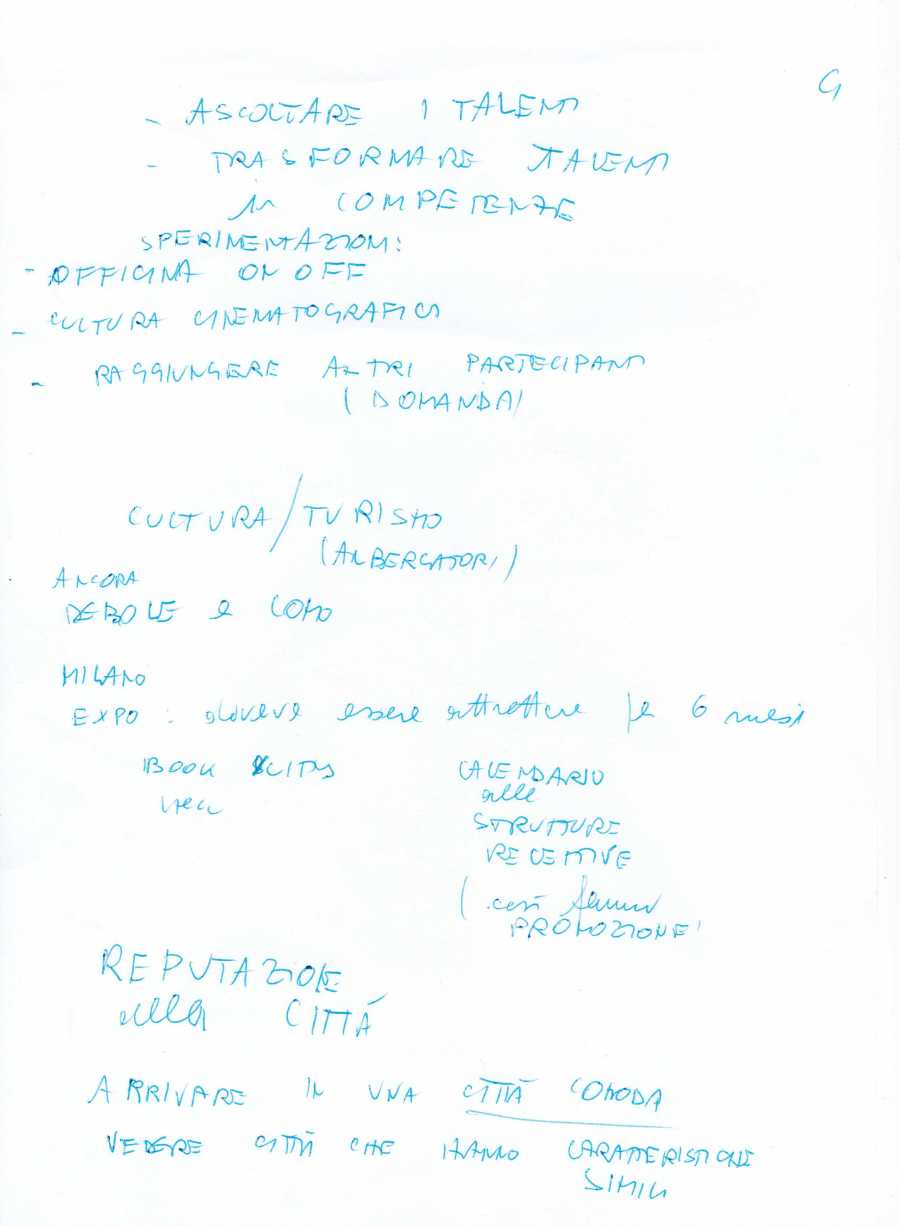 - ASCOLTARE I TALENTI
- TRASFORMARE I TALENTI
IN COMPETENZE
SPERIMENTAZIONI:
- OFFICINA ON OFF
- CULTURA CINEMATOGRAFICA
- RAGGIUNGERE ALTRI PARTECIPANTI
(DOMANDA)
CULTURA / TURISMO
(ALBERGATORI)
ANCORA
DEBOLE a COMO
MILANO
EXPO: doveva essere attrattore per 6 mesi
BOOK CITY
CALENDARIO
alle
STRUTTURE
RECETTIVE
(così fanno
PROMOZIONE)
REPUTAZIONE
della CITTÀ
ARRIVARE IN UNA CITTÀ COMODA
VEDERE CITTÀ CHE HANNO CARATTERISTICHE
SIMILI